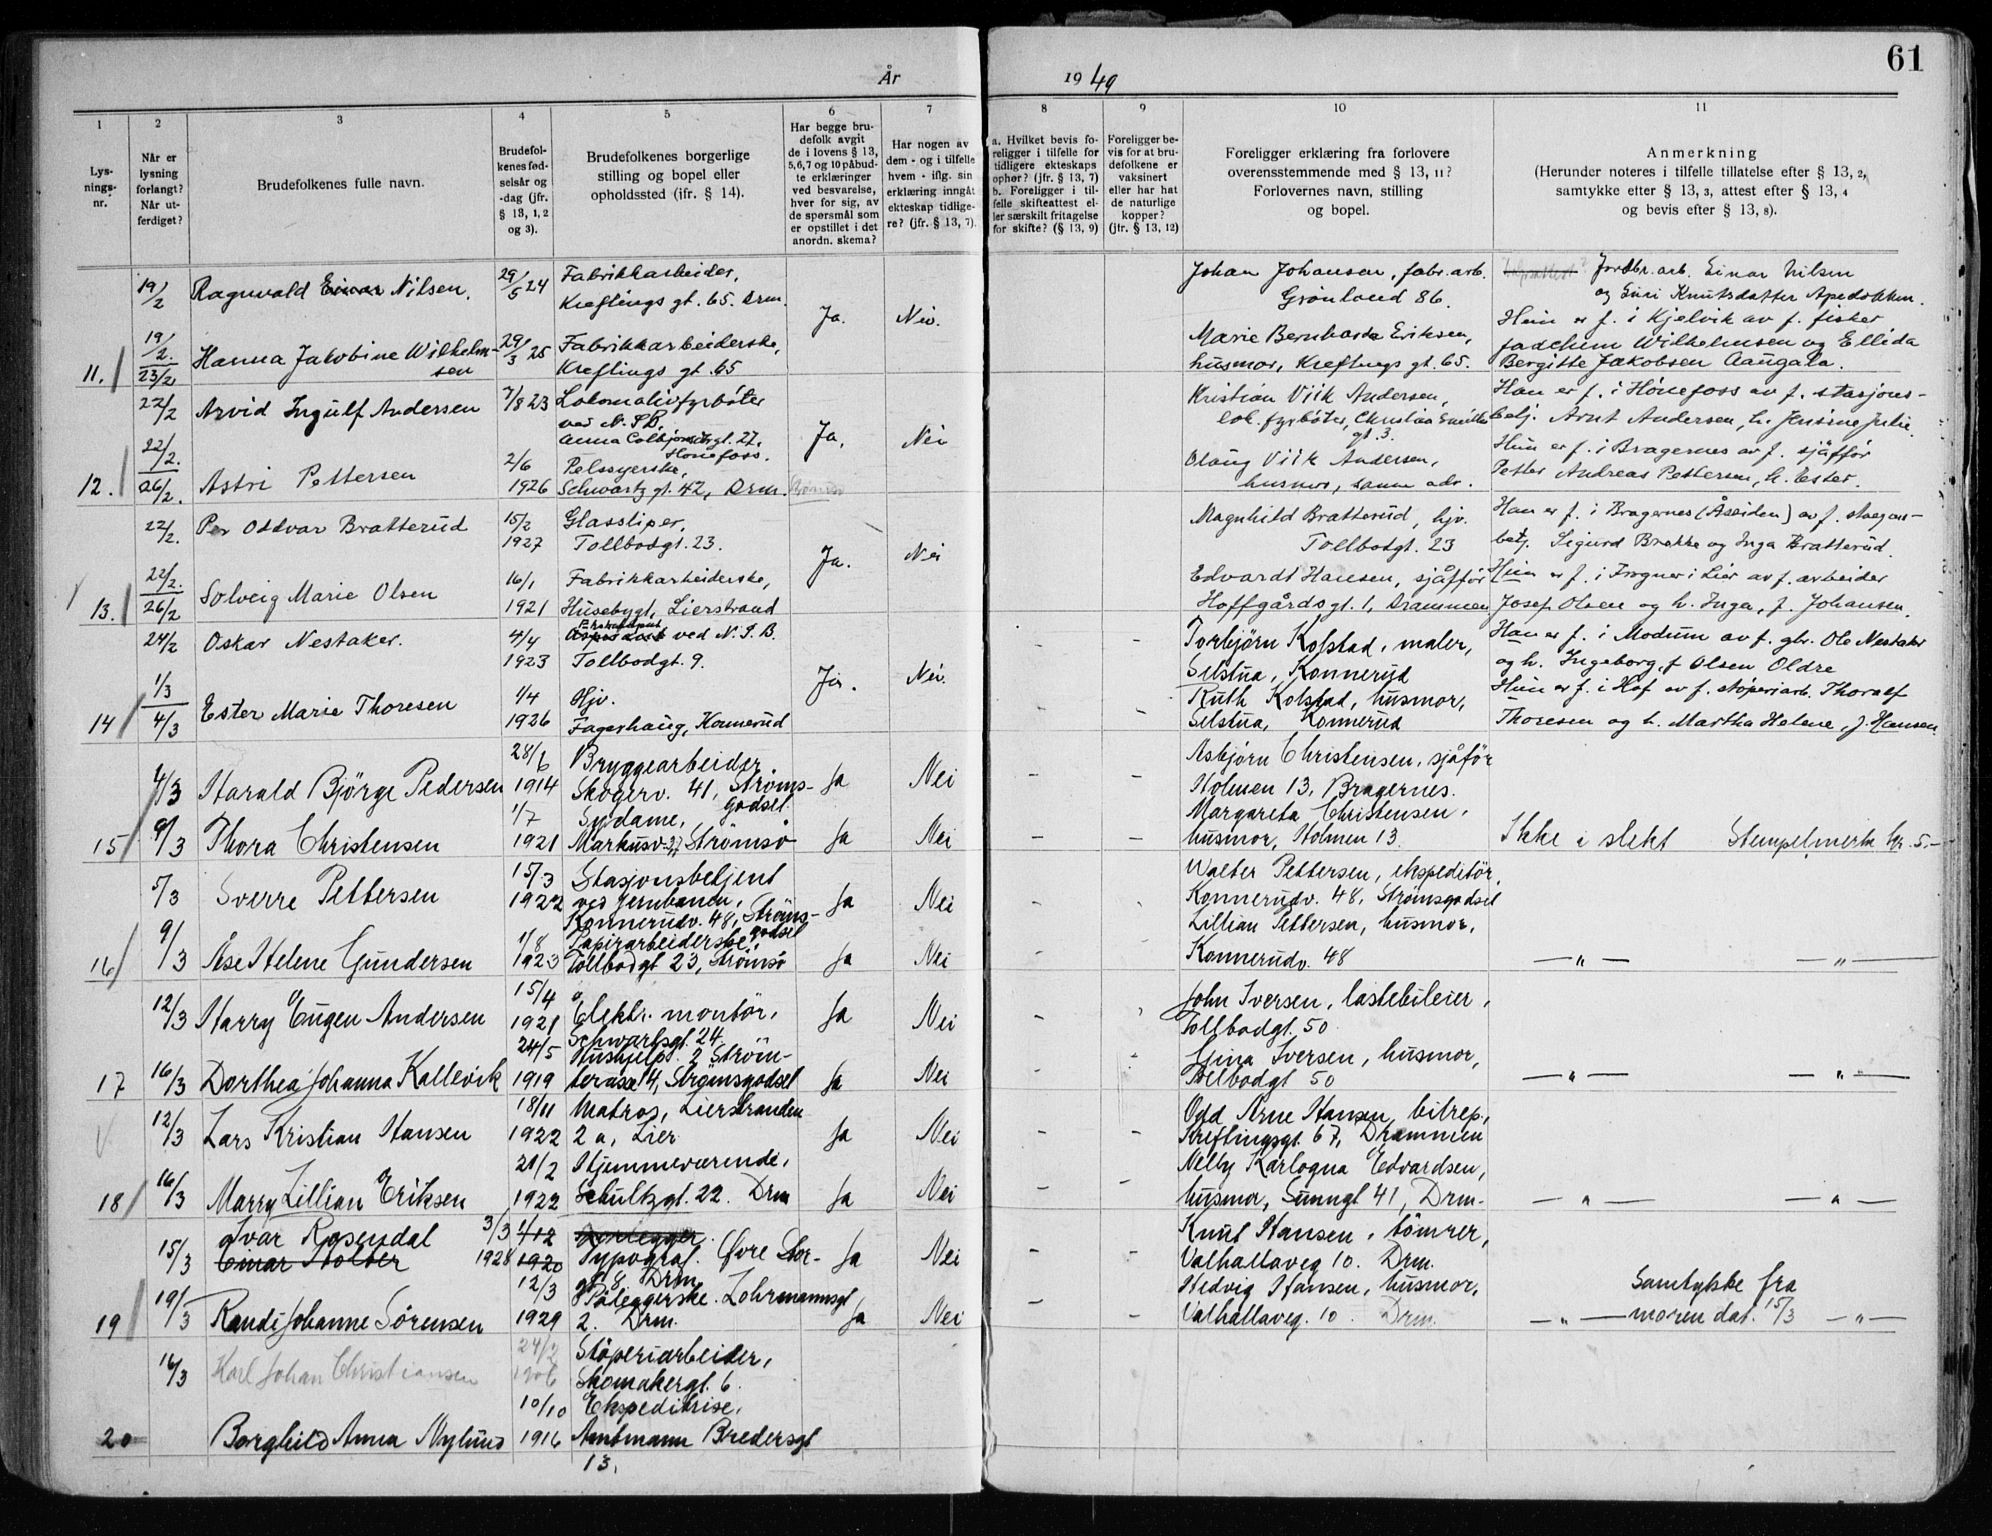 År 1949
61
1 2 3 4 5 6 7 8 9 10 11
Lys-
nings-
nr.
Når er
lysning
forlangt?
Når ut-
ferdiget?
Brudefolkenes fulle navn.
Brudefol-
kenes fød-
selsår og
-dag (jfr.
§ 13, 1, 2
og 3).
Brudefolkenes borgerlige
stilling og bopel eller
opholdssted (ifr. § 14).
Har begge bru-
defolk avgit
de i lovens § 13,
5,6,7 og 10 påbud-
te erklæringer
ved besvarelse,
hver for sig, av
de spørsmål som
er opstillet i det
anordn. skema?
Har nogen av
dem - og i tilfelle
hvem - iflg. sin
erklæring inngåt
ekteskap tidlige-
re? (jfr. § 13, 7).
a. Hvilket bevis fo-
religger i tilfelle for
tidligere ekteskaps
ophør? (jfr. § 13, 7)
b. Foreligger i til-
felle skifteattest el-
ler særskilt fritagelse
for skifte? (§ 13, 9)
Foreligger be-
vis for at bru-
defolkene er
vaksinert
eller har hat
de naturlige
kopper?
(jfr. § 13, 12)
Foreligger erklæring fra forlovere
overensstemmende med § 13, 11?
Forlovernes navn, stilling
og bopel.
Anmerkning
(Herunder noteres i tilfelle tillatelse efter § 13, 2,
samtykke efter § 13, 3, attest efter § 13, 4
og bevis efter § 13, 8).
19/2 Ragnvald Einar Nilsen. 29/5 24 Fabrikkarbeider,
Kreftings gt. 65. Drm. Ja. Nei.
Johan Johansen, fabr. arb.
Grønland 86.
Jordbr. arb. Einar Nilsen
og Knutsdatter
11. 19/2. 23/2 Hanna Jakobine Wilhelm-
sen 29/3 25 Fabrikkarbeiderske,
Kreftings gt. 65
Marie Bernharda Eriksen,
husmor, Kreftings gt. 65.
Hun er f. i Kjelvik av f. fisker
Joachim Wilhelmsen og Ellida
Bergitte Jakobsen Aaugala.
22/2 Arvid Ingulf Andersen 7/8 23 Lokomotivfyrbøter
ved N.S.B.
Anna Colbjørnsdtrgt. 27,
Hønefoss. Ja. Nei
Kristian Viik Andersen,
lok. fyrbøter, Christian
gt. 3.
Han er f. i Hønefoss av f. stasjons-
betj. Arnt Andersen, h. Jensine Julie.
12. 22/2. 26/2. Astri Pettersen 2/6
1926 Pelssyerske,
Schwartz gt. 42, Drm.
Olaug Viik Andersen,
husmor, samme adr.
Hun er f. i Bragernes av f. sjåfør
Petter Andreas Pettersen, h. Ester.
22/2. Per Oddvar Bratterud 15/2
1927 Glassliper,
Tollbodgt. 23. Ja. Nei
Magnhild Bratterud, hjv.
Tollbodgt. 23
Han er f. i Bragernes (Åssiden) av f. stasjons-
betj. Sigurd Brekke og Inga Bratterud.
13. 22/2. 26/2 Solveig Marie Olsen 16/1
1921 Fabrikkarbeiderske,
Husebygt, Lierstrand
Edvardt Hansen, sjåfför
Hoffgårdsgt. 1, Drammen
Hun er f. i Frogner i Lier av f. arbeider
Josef Olsen og h. Inga, f. Johansen.
24/2 Oskar Nestaker. 4/4
1923 ved N.S.B.
Tollbodgt. 9. Ja. Nei. - -
Torbjørn Kolstad, maler,
Selstua, Konnerud
Han er f. i Modum av f. gbr. Ole Nestaker
og h. Ingeborg, f Olsen Oldre
14 1/3 4/3 Ester Marie Thoresen 1/4
1926 Hjv.
Fagerhaug, Konnerud - -
Ruth Kolstad, husmor,
Selstua, Konnerud
Hun er f. i Hof av f. støperiarb. Thoralf
Thoresen og h. Martha Helene, f. Hansen
4/3 Harald Bjørge Pedersen 28/6
1914 Bryggearbeider.
Skogerv. 41, Strøms-
godset. Ja Nei - -
Asbjørn Christensen, sjåför
Holmen 13, Bragernes.
15 9/3 Thora Christensen 1/7
1921 Sydame,
Markusv. Strømsø Ja Nei - -
Margareta Christensen,
husmor, Holmen 13.
Ikke i slekt Stempelmerke kr. 5.-
5/3 Sverre Pettersen 15/3
1922 Stasjonsbetjent
ved jernbanen,
Konnerudv. 48, Strøms-
godset Ja Nei - -
Walter Pettersen, ekspeditör,
Konnerudv. 48, Strømsgodset
16 9/3 Åse Helene Gundersen 1/8
1923 Papirarbeiderske,
Tollbodgt 23, Strømsø Ja Nei -
Lillian Pettersen, husmor,
Konnerudv. 48
-"- -"-
12/3 Harry Eugen Andersen 15/4
1921 Elektr. montör,
Schwartsgt. 24. Ja Nei -
John Iversen, lastebileier,
Tollbodgt. 50
17 16/3 Dorthea Johanna Kallevik 24/5
1919 Hushjelp. 2 Strøm-
terasse 14, Strømsgodset Ja Nei - -
Gina Iversen, husmor,
Tollbodgt 50
-"- -"-
12/3 Lars Kristian Hansen 18/11
1922 Matros, Lierstranden
2 a, Lier Ja Nei - -
Odd Arne Hansen, bilrep.,
Kreftingsgt. 67, Drammen
18 16/3 Marry Lillian Eriksen 21/2
1922 Hjemmeværende,
Schultzgt. 22. Drm Ja Nei - -
Nelly Karlogna Edvardsen,
husmor, Sunngt 41, Drm.
-"- -"-
Ivar Rosendal
15/3 Einar Holter 3/3
1928 1/12
1920 Rørlegger.
Typograf. Øvre Stor-
gt 8, Drm Ja Nei - -
Knut Hansen, tömrer,
Valhallaveg 10. Drm.
19 19/3 Randi Johanne Sørensen 12/3
1929 Påleggerske. Lohrmannsgt
2. Drm. Ja Nei - -
Hedvig Hansen, husmor,
Valhallaveg. 10. Drm.
Samtykke fra
-"- moren dat. 15/3 -"-
16/3 Karl Johan Christiansen 24/2
1906 Støperiarbeider,
Skomakergt. 6.
20 Borghild Anna Nylund 10/10
1916 Ekspeditrise,
Amtmann Bredersgt
13.